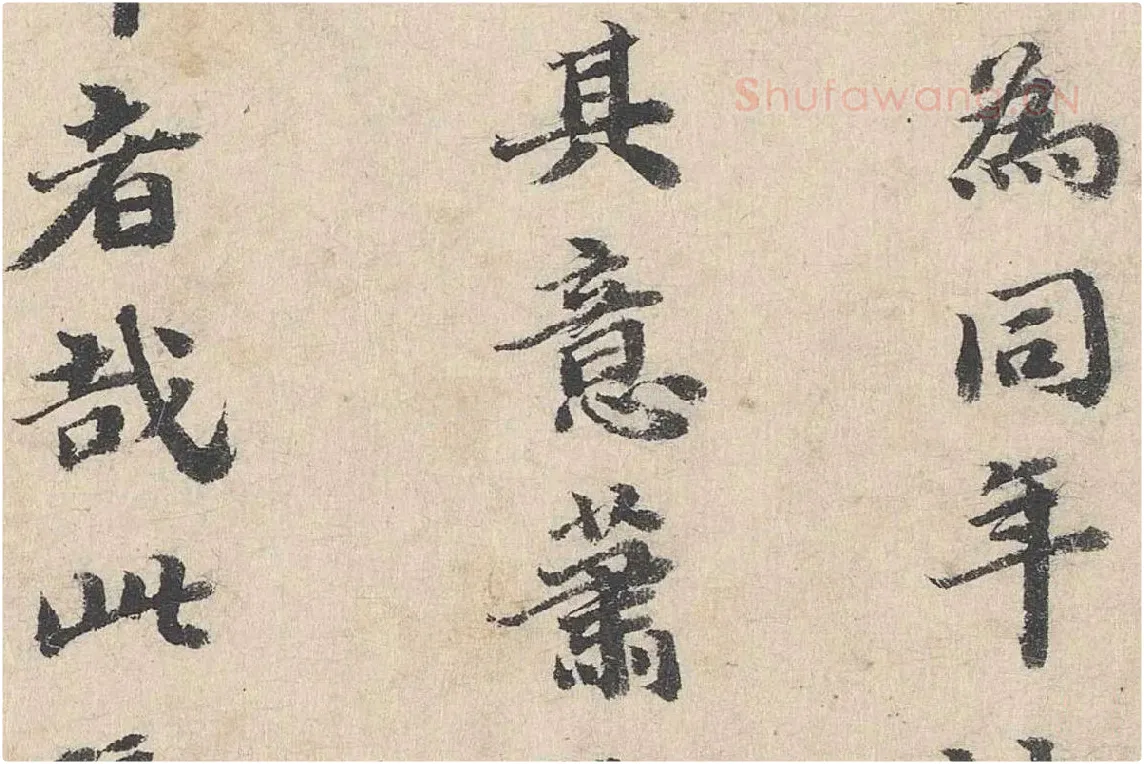 為同年
其意蕭
者哉此
Shufawang.CN